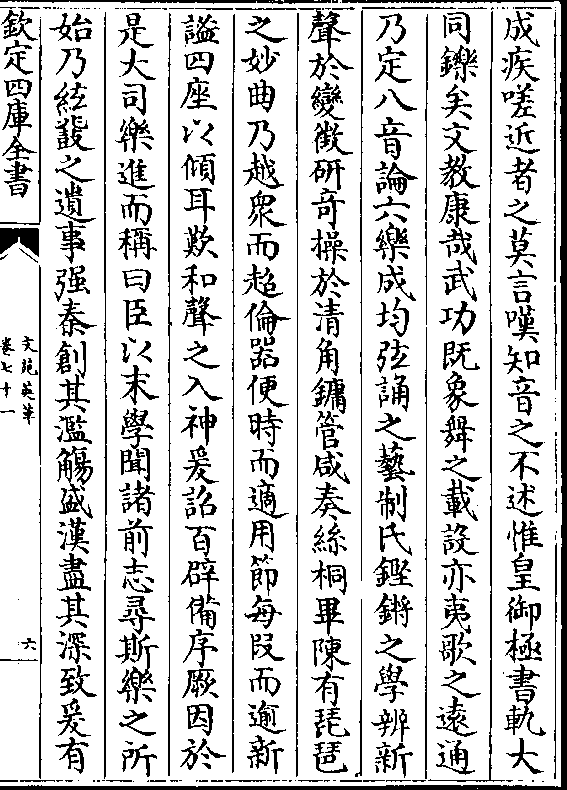 成疾嗟近者之莫言嘆知音之不述惟皇御極書軌大
同鑠矣文教康哉武功既象舞之載設亦夷歌之遠通
乃定八音論六樂成均弦誦之藝制氏鏗鏘之學辨新
聲於變徵研竒操於清角鏞管咸奏絲桐畢陳有琵琶
之妙曲乃越衆而超倫器便時而適用節每段而逾新
謐四座以傾耳歎和聲之入神爰詔百辟備序厥因於
是大司樂進而稱曰臣以末學聞諸前志尋斯樂之所
始乃絃鼗之遺事强秦創其濫觴盛漢盡其深致爰有
欽定四庫全書
文苑英華
卷七十一
六